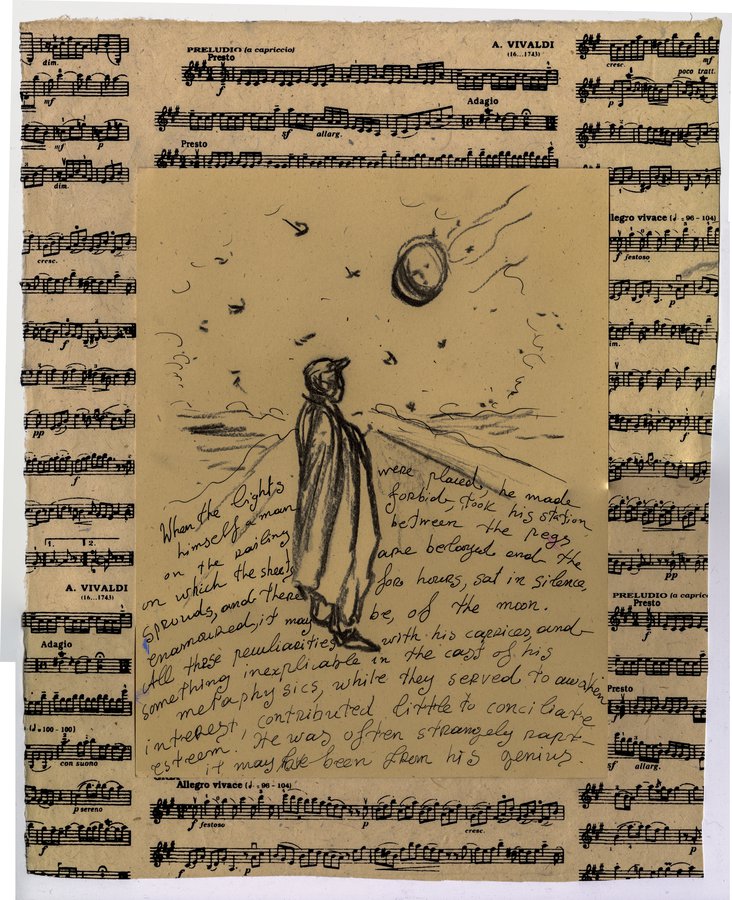 dim.
mf
mf p
dim.
cresc.
f
pp
f
1. 2.
A. VIVALDI
(16...1743)
Adagio
(♩=100-100)
con suono
p sereno
f
PRELUDIO (a capriccio)
A. VIVALDI
(16...1743)
Presto
f
Adagio
sf allarg.
Presto
When the lights were placed, he made
himself a man forbid, took his station
on the railing between the pegs
on which the sheets are belayed and the
shrouds, and there for hours, sat in silence,
enamoured, it may be, of the moon.
All these peculiarities with his caprices, and
something inexplicable in the cast of his
metaphysics, while they served to awaken
interest, contributed little to conciliate
esteem. He was often strangely rapt-
it may have been from his genius.
Allegro vivace (♩=96-104)
f festoso
p
cresc.
p
cresc.
mf
poco tratt.
p
f
llegro vivace (♩=96-104)
f festoso
p
im.
f
pp
PRELUDIO (a capric
Presto
f
Presto
sf allarg.
p